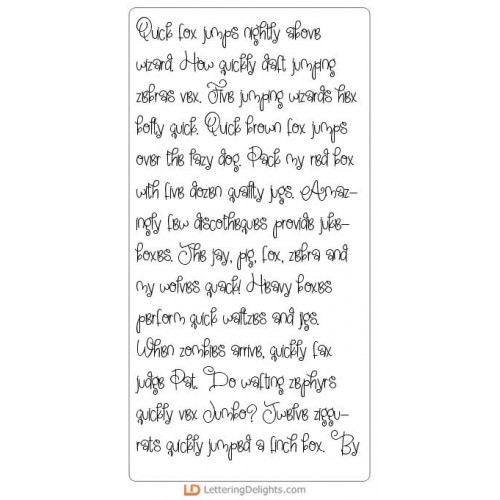 Quick fox jumps nightly above
wizard. How quickly daft jumping
zebras vex. Five jumping wizards hex
bolty quick. Quick brown fox jumps
over the lazy dog. Pack my red box
with five dozen quality jugs. Amaz-
ingly few discotheques provide juke-
boxes. The jay, pig, fox, zebra and
my wolves quack! Heavy boxes
perform quick waltzes and jigs.
When zombies arrive, quickly fax
judge Pat. Do wafting zephyrs
quickly vex Jumbo? Twelve ziggu-
rats quickly jumped a finch box. By
LD LetteringDelights.com